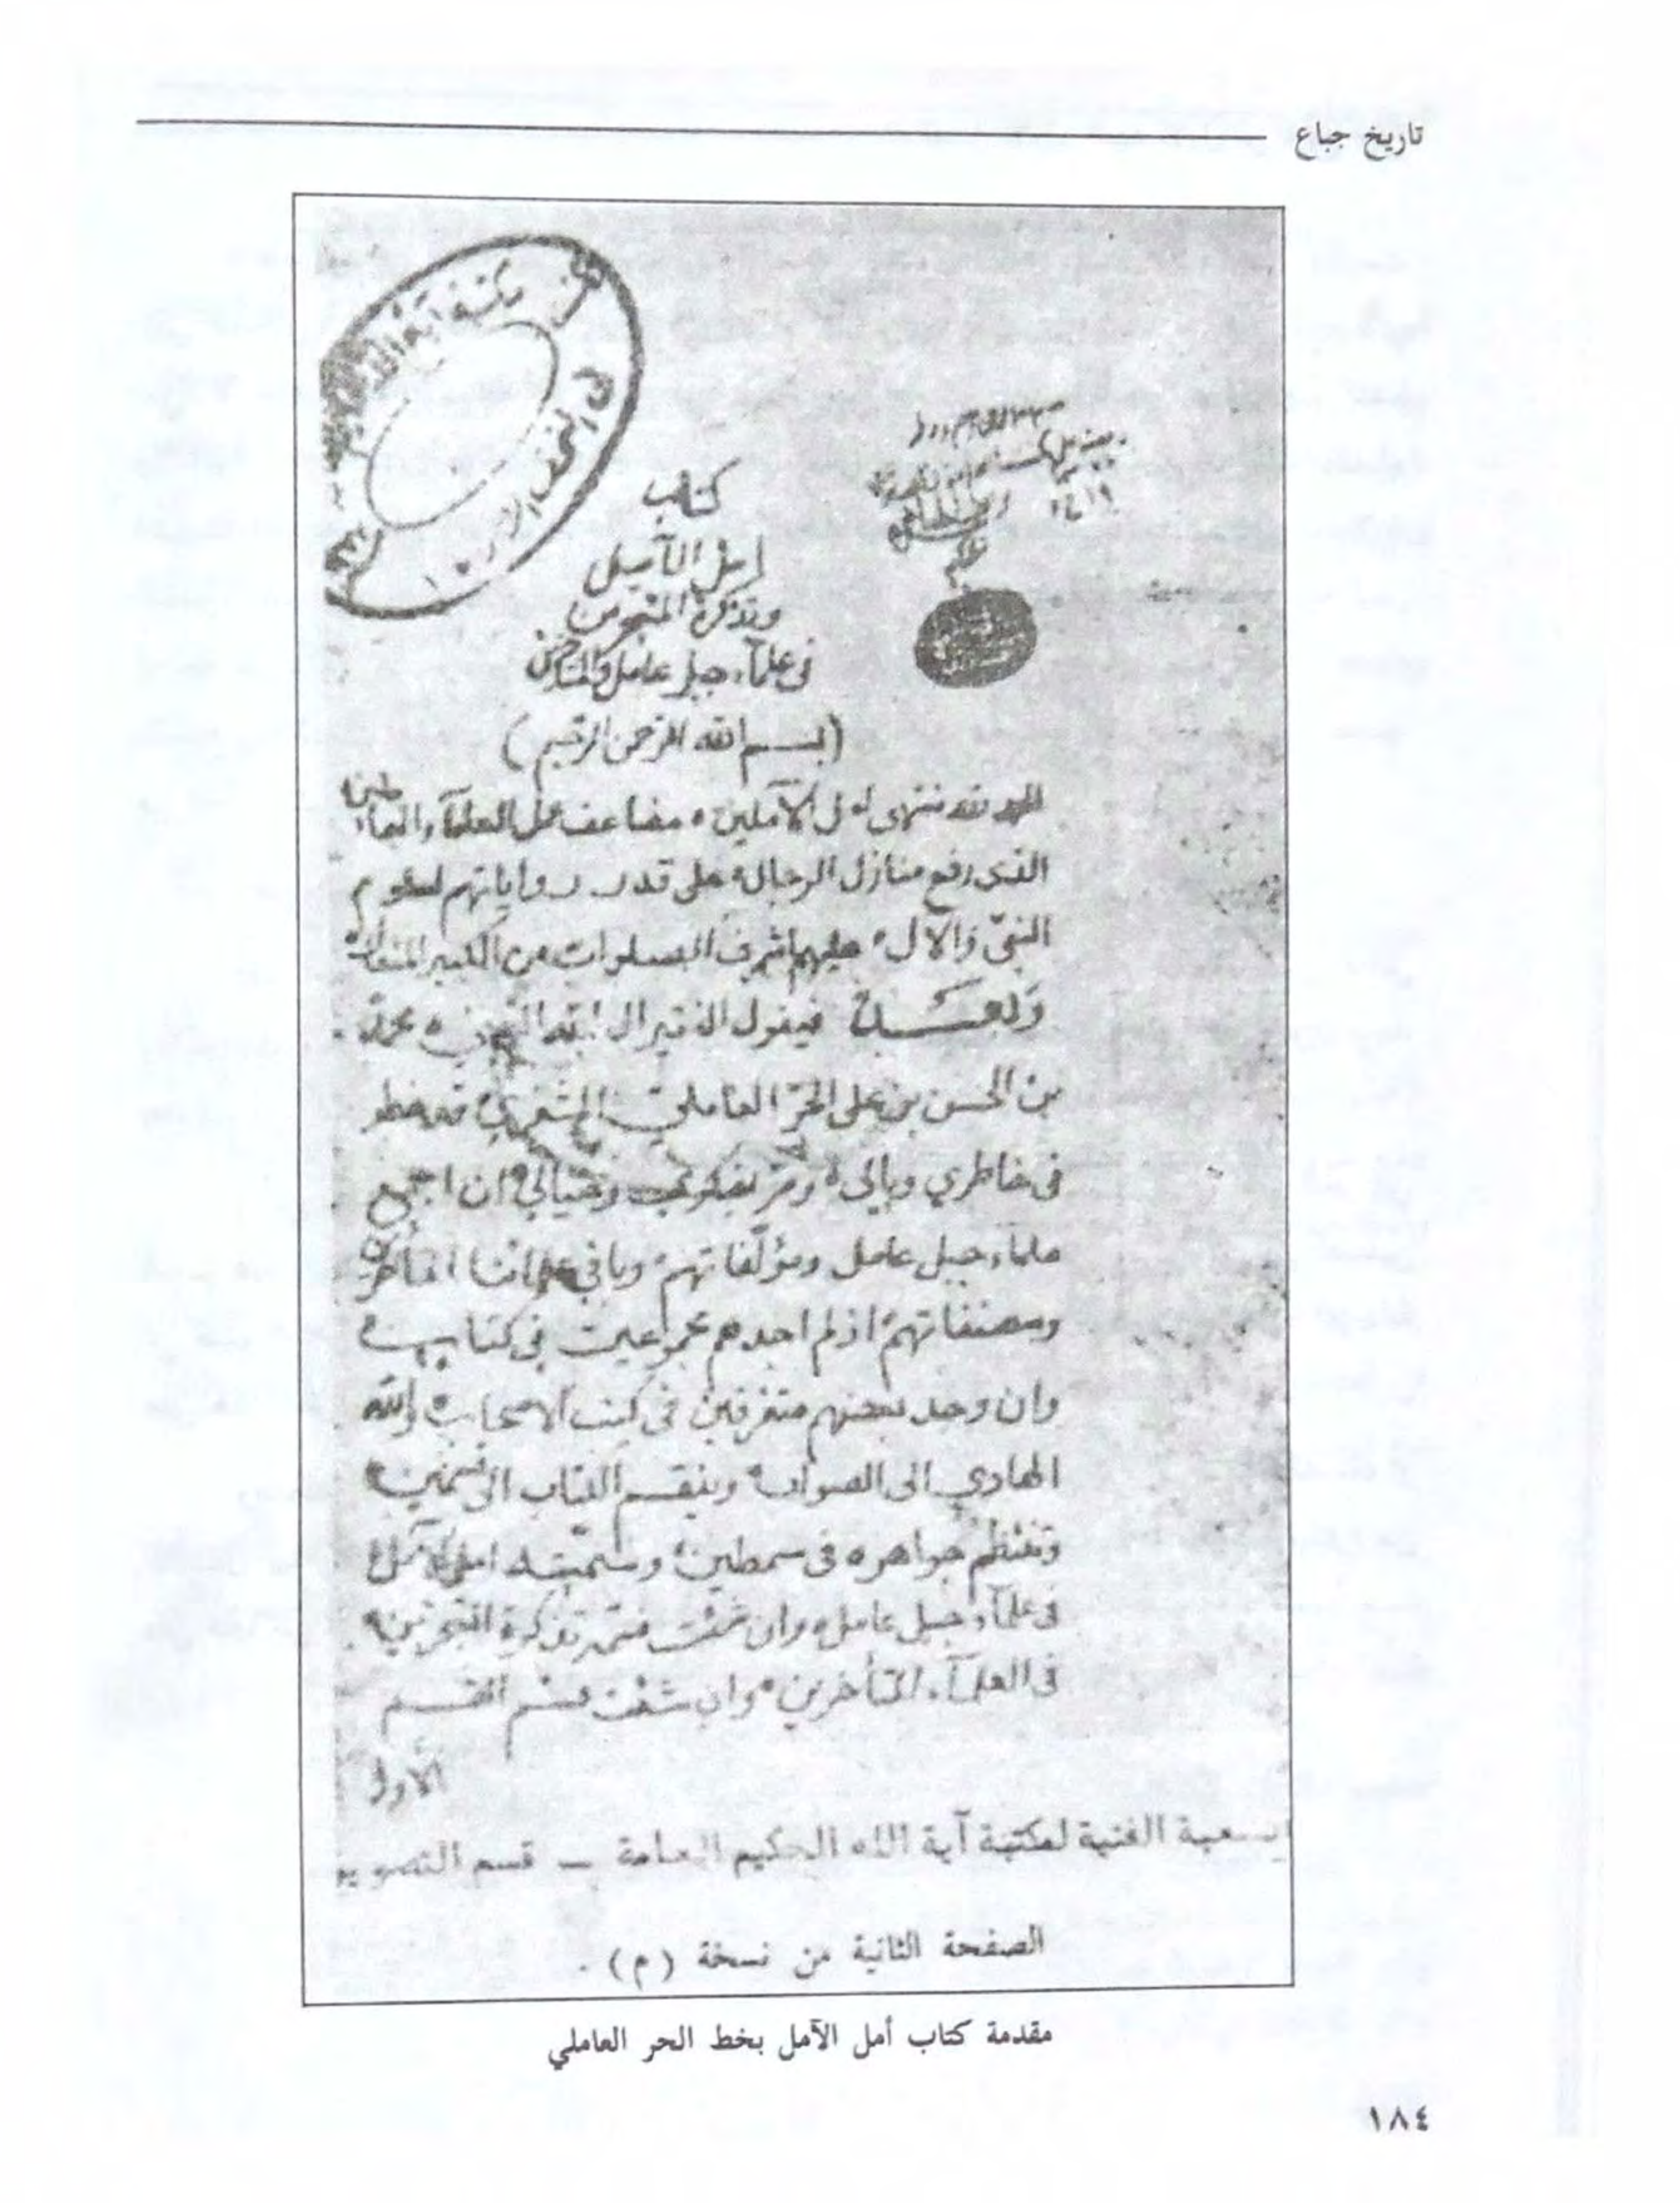 تاريخ جباع
مكتبة آية الله
النجف الا
١٤١٩
كتاب
امل الآمل
وتذكرة المتبحرين
في علمآء جبل عامل والمتاخرين
(بسم الله الرحمن الرحيم)
الحمد لله منتهى امل الآملين ه مضاعف عمل العلمآء والعاملين
الذى رفع منازل الرجال ه على قدر رواياتهم لعلوم
النبيّ والآل ه عليهم اشرف الصلوات من الكبير المتعال ه
وبعد فيقول الفقير الى الله الغني ه محمد
بن الحسن بن علي الحرّ العاملي المشغري قد خطر
في خاطري وبالي ه ومرّ بفكري وخيالي ه ان اجمع
علماء جبل عامل ومؤلّفاتهم وباقي علمائنا المتأخرين
ومصنفاتهم اذ لم اجدهم مجموعين في كتاب ه
وان وجد بعضهم متفرقين في كتب الاصحاب ه والله
الهادي الى الصواب ه وينقسم الكتاب الى قسمين ه
وتنتظم جواهره في سمطين ه وسمّيته امل الآمل ه
في علمآء جبل عامل ه وان شئت فسمه تذكرة المتبحرين ه
في العلمآء المتأخرين ه وان شئت فسم القسم
الأول
الفنية لمكتبة آية الله الحكيم العامة – قسم التصوير
الصفحة الثانية من نسخة (م) .
مقدمة كتاب أمل الآمل بخط الحر العاملي
١٨٤